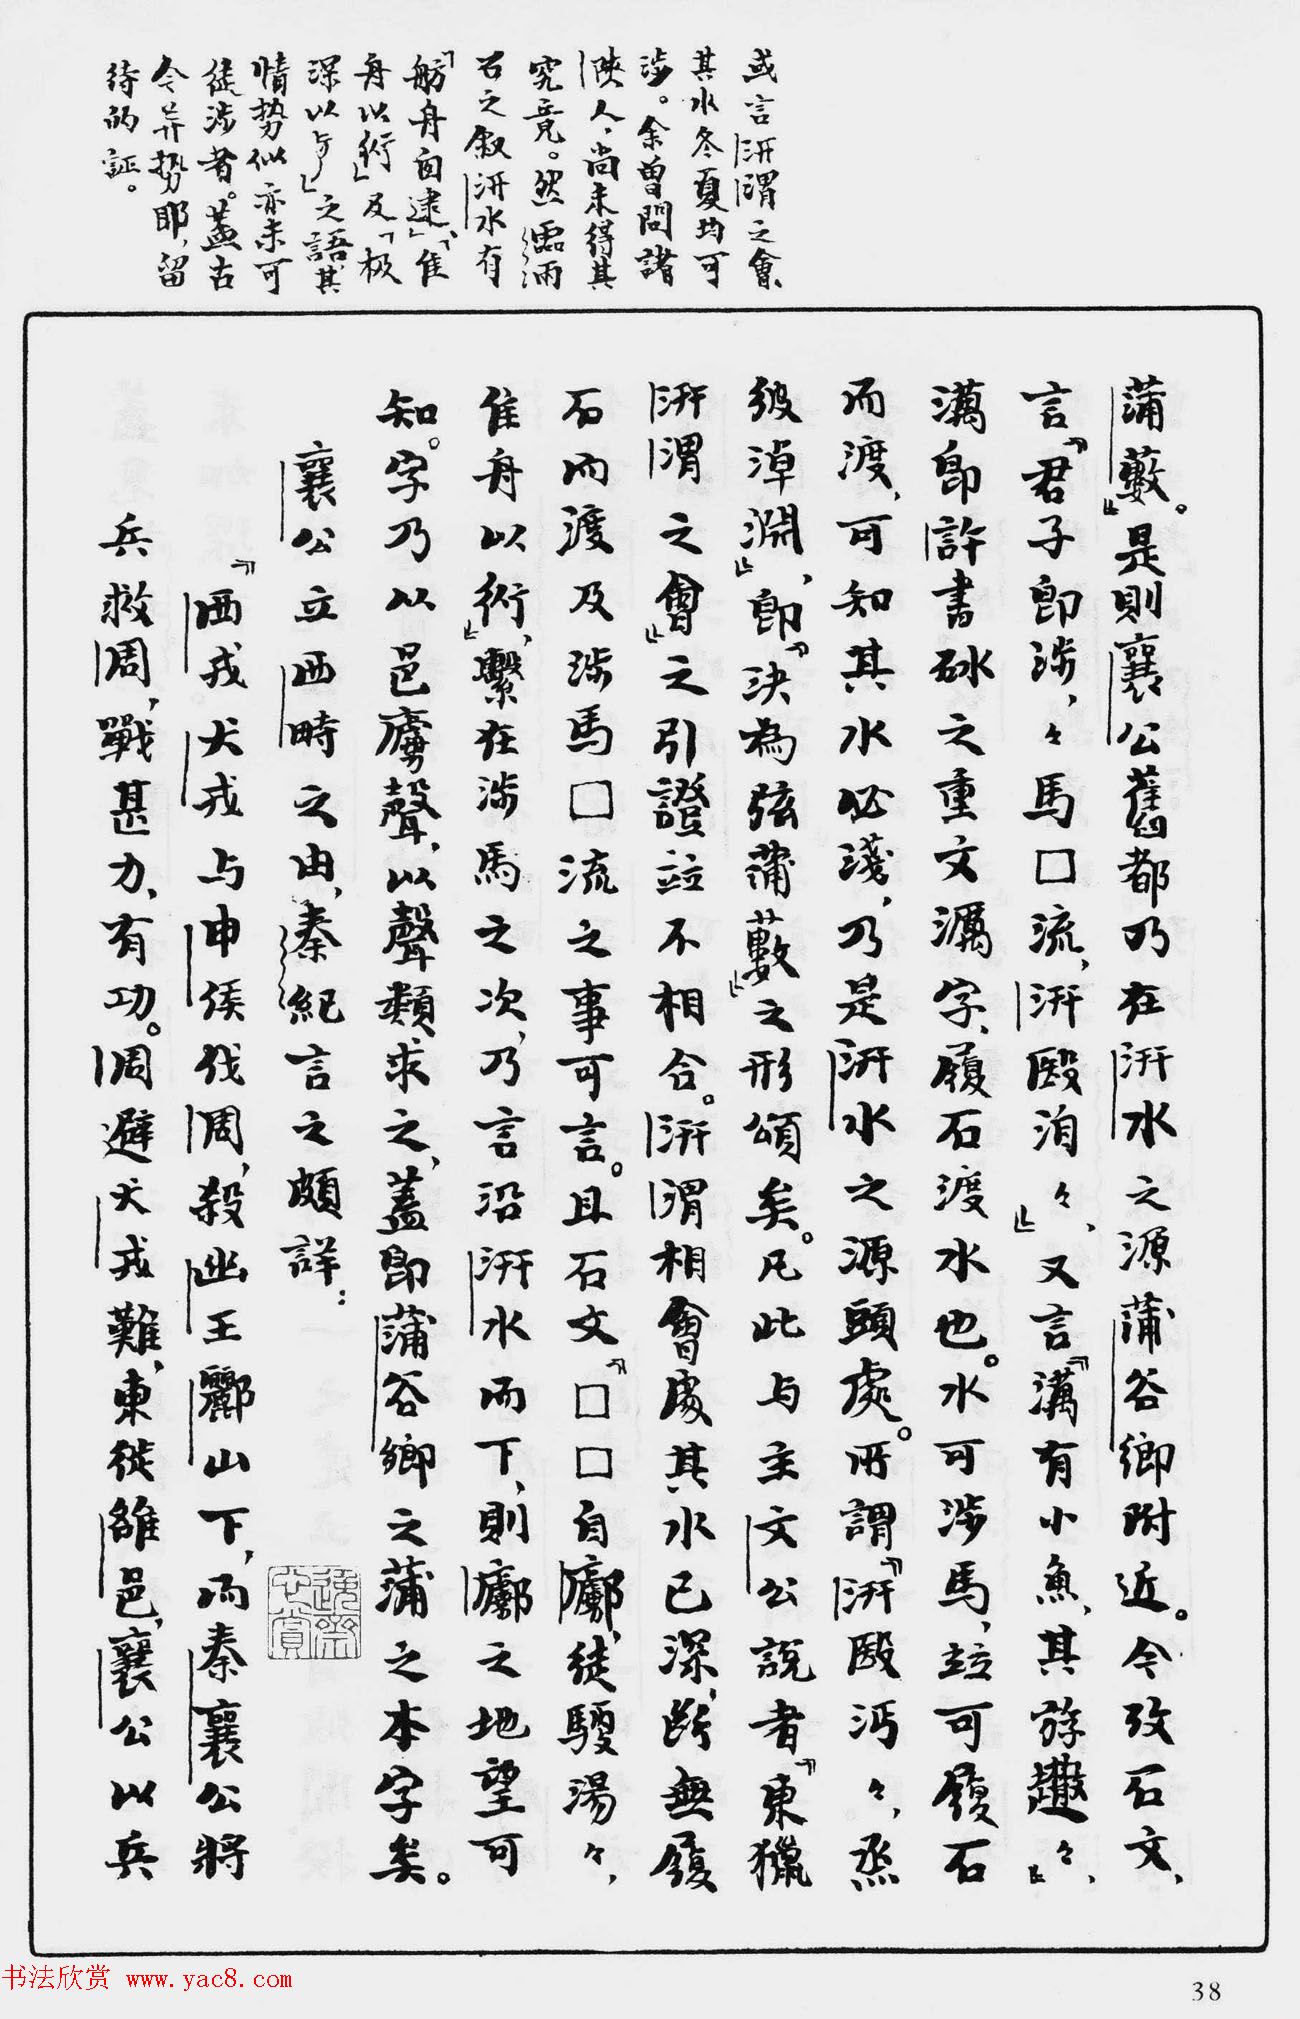 或言汧渭之會、
其水冬夏均可
涉。余曾問諸
陝人、尚未得其
究竟。然霝雨
石之叙汧水有
「舫舟自逮」、「隹
舟以衍」及「极
深以戶」之語、其
情勢似亦未可
徒涉者。蓋古
今異勢耶、留
待的証。
蒲藪』。是則襄公舊都乃在汧水之源蒲谷鄉附近。今攷石文、
言『君子即涉、々馬□流、汧殹洎々』、又言『澫有小魚、其斿趣々』、
澫即許書砅之重文濿字、履石渡水也。水可涉馬、竝可履石
而渡、可知其水必淺、乃是汧水之源頭處。所謂『汧殹沔々、烝
彼淖淵』、即『決為弦蒲藪』之形頌矣。凡此与主文公說者『東獵
汧渭之會』之引證竝不相合。汧渭相會處其水已深、斷無履
石而渡及涉馬□流之事可言。且石文『□□自廓、徒驂湯々、
隹舟以衍』、繫在涉馬之次、乃言沿汧水而下、則廓之地望可
知。字乃从邑膚聲、以聲類求之、蓋即蒲谷鄉之蒲之本字矣。
襄公立西畤之由、秦紀言之頗詳：
『西戎犬戎与申侯伐周、殺幽王酈山下、而秦襄公將
兵救周、戰甚力、有功。周避犬戎難、東徙雒邑、襄公以兵
书法欣赏 www.yac8.com
38